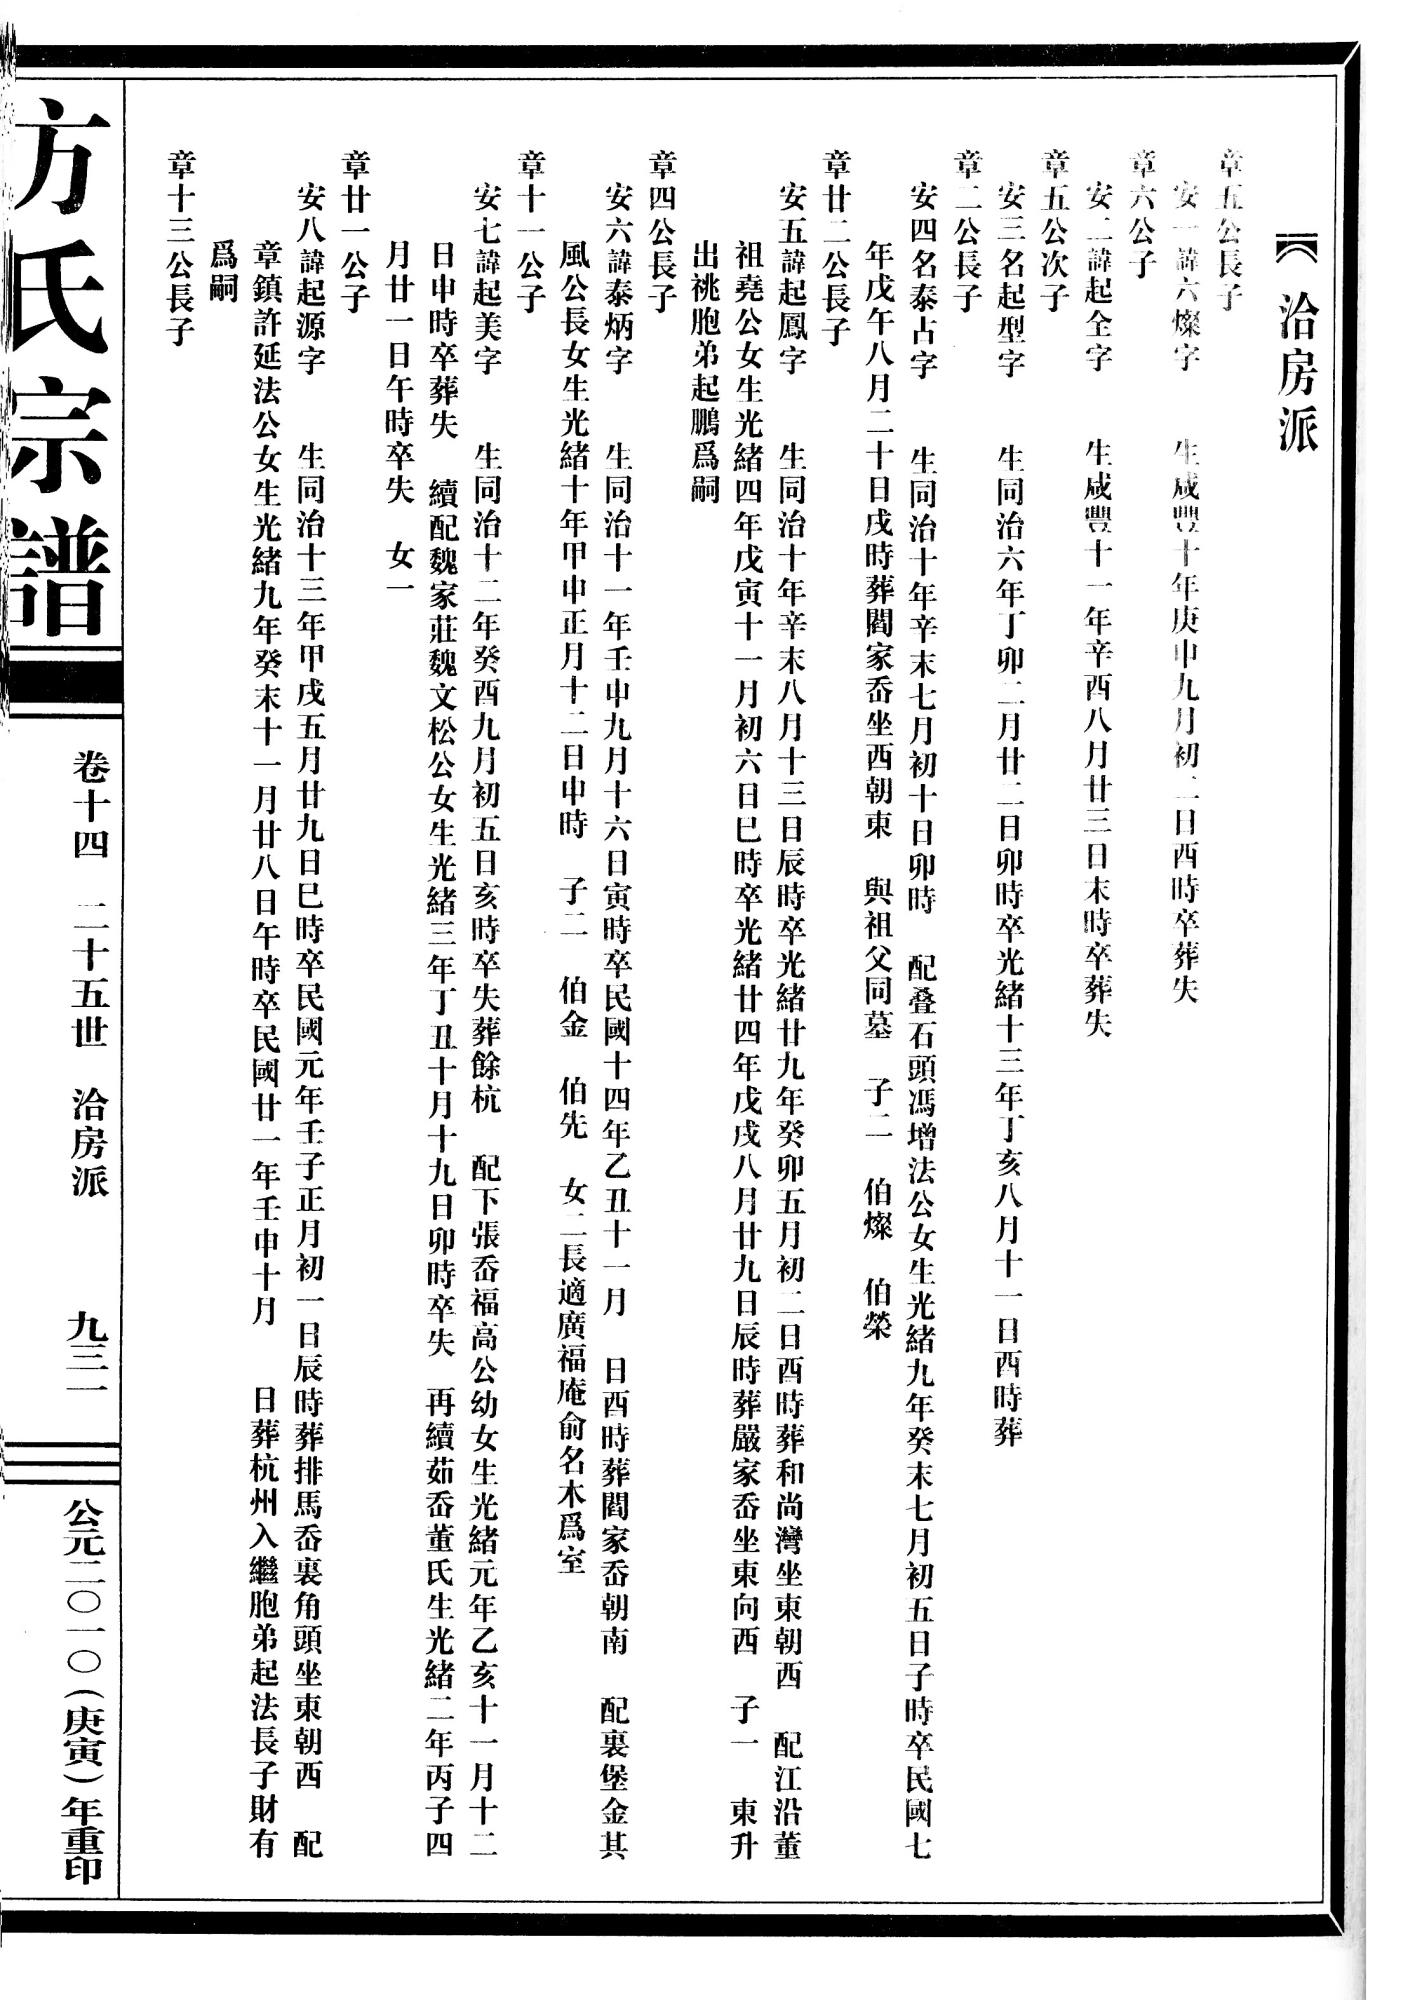 洽房派
章五公長子
安一諱六燦字　生咸豐十年庚申九月初二日酉時卒葬失
章六公子
安二諱起全字　生咸豐十一年辛酉八月廿三日未時卒葬失
章五公次子
安三名起型字　生同治六年丁卯二月廿二日卯時卒光緒十三年丁亥八月十一日酉時葬
章二公長子
安四名泰占字　生同治十年辛未七月初十日卯時　配叠石頭馮增法公女生光緒九年癸未七月初五日子時卒民國七
年戊午八月二十日戌時葬閻家岙坐西朝東　與祖父同墓　子二　伯燦　伯榮
章廿二公長子
安五諱起鳳字　生同治十年辛未八月十三日辰時卒光緒廿九年癸卯五月初二日酉時葬和尚灣坐東朝西　配江沿董
祖堯公女生光緒四年戊寅十一月初六日巳時卒光緒廿四年戊戌八月廿九日辰時葬嚴家岙坐東向西　子一　東升
出祧胞弟起鵬爲嗣
章四公長子
安六諱泰炳字　生同治十一年壬申九月十六日寅時卒民國十四年乙丑十一月　日酉時葬閻家岙朝南　配裏堡金其
風公長女生光緒十年甲申正月十二日申時　子二　伯金　伯先　女二長適廣福庵俞名木爲室
章十一公子
安七諱起美字　生同治十二年癸酉九月初五日亥時卒失葬餘杭　配下張岙福高公幼女生光緒元年乙亥十一月十二
日申時卒葬失　續配魏家莊魏文松公女生光緒三年丁丑十月十九日卯時卒失　再續茹岙董氏生光緒二年丙子四
月廿一日午時卒失　女一
章廿一公子
安八諱起源字　生同治十三年甲戌五月廿九日巳時卒民國元年壬子正月初一日辰時葬排馬岙裏角頭坐東朝西　配
章鎮許延法公女生光緒九年癸未十一月廿八日午時卒民國廿一年壬申十月　日葬杭州入繼胞弟起法長子財有
爲嗣
章十三公長子
方氏宗譜
卷十四　二十五世　洽房派　九三一
公元二〇一〇(庚寅)年重印